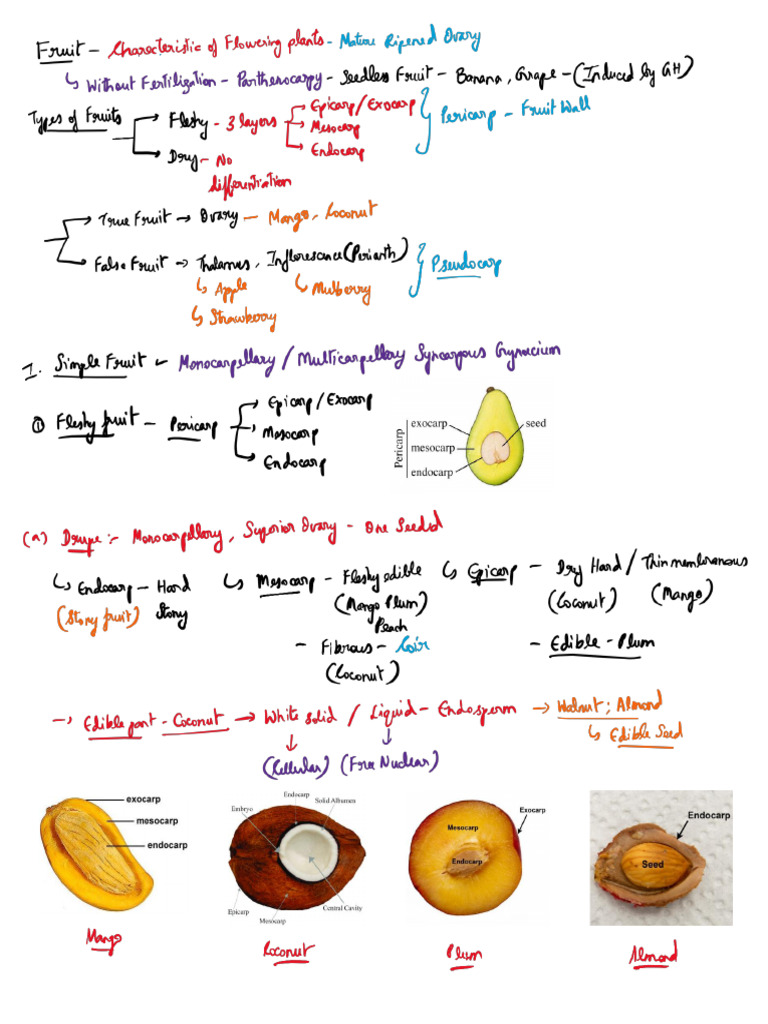 Fruit - Characteristic of Flowering plants - Mature Ripened Ovary
↳ Without Fertilization - Parthenocarpy - Seedless Fruit - Banana, Grape - (Induced by GH)
Types of Fruits → Fleshy - 3 layers → Epicarp/Exocarp
Mesocarp
Endocarp
} Pericarp - Fruit Wall
→ Dry - No differentiation
→ True Fruit → Ovary - Mango, Coconut
→ False Fruit → Thalamus, Inflorescence (Perianth) } Pseudocarp
↳ Apple ↳ Mulberry
↳ Strawberry
I. Simple Fruit - Monocarpellary / Multicarpellary Syncarpous Gynacium
① Fleshy fruit - Pericarp → Epicarp / Exocarp
→ Mesocarp
→ Endocarp
Pericarp
exocarp
mesocarp
endocarp
seed
(a) Drupe :- Monocarpellary, Superior Ovary - One Seeded
↳ Endocarp - Hard Stony
(Stony fruit)
↳ Mesocarp - Fleshy edible
(Mango Plum)
Peach
- Fibrous - Coir
(Coconut)
↳ Epicarp - Dry Hard / Thin membranous
(Coconut) (Mango)
- Edible - Plum
→ Edible part - Coconut → White solid / Liquid - Endosperm → Walnut; Almond
↓ ↓ ↳ Edible Seed
(Cellular) (Free Nuclear)
exocarp
mesocarp
endocarp
Mango
Endocarp
Embryo
Solid Albumen
Epicarp
Mesocarp
Central Cavity
Coconut
Exocarp
Mesocarp
Endocarp
Plum
Endocarp
Seed
Almond